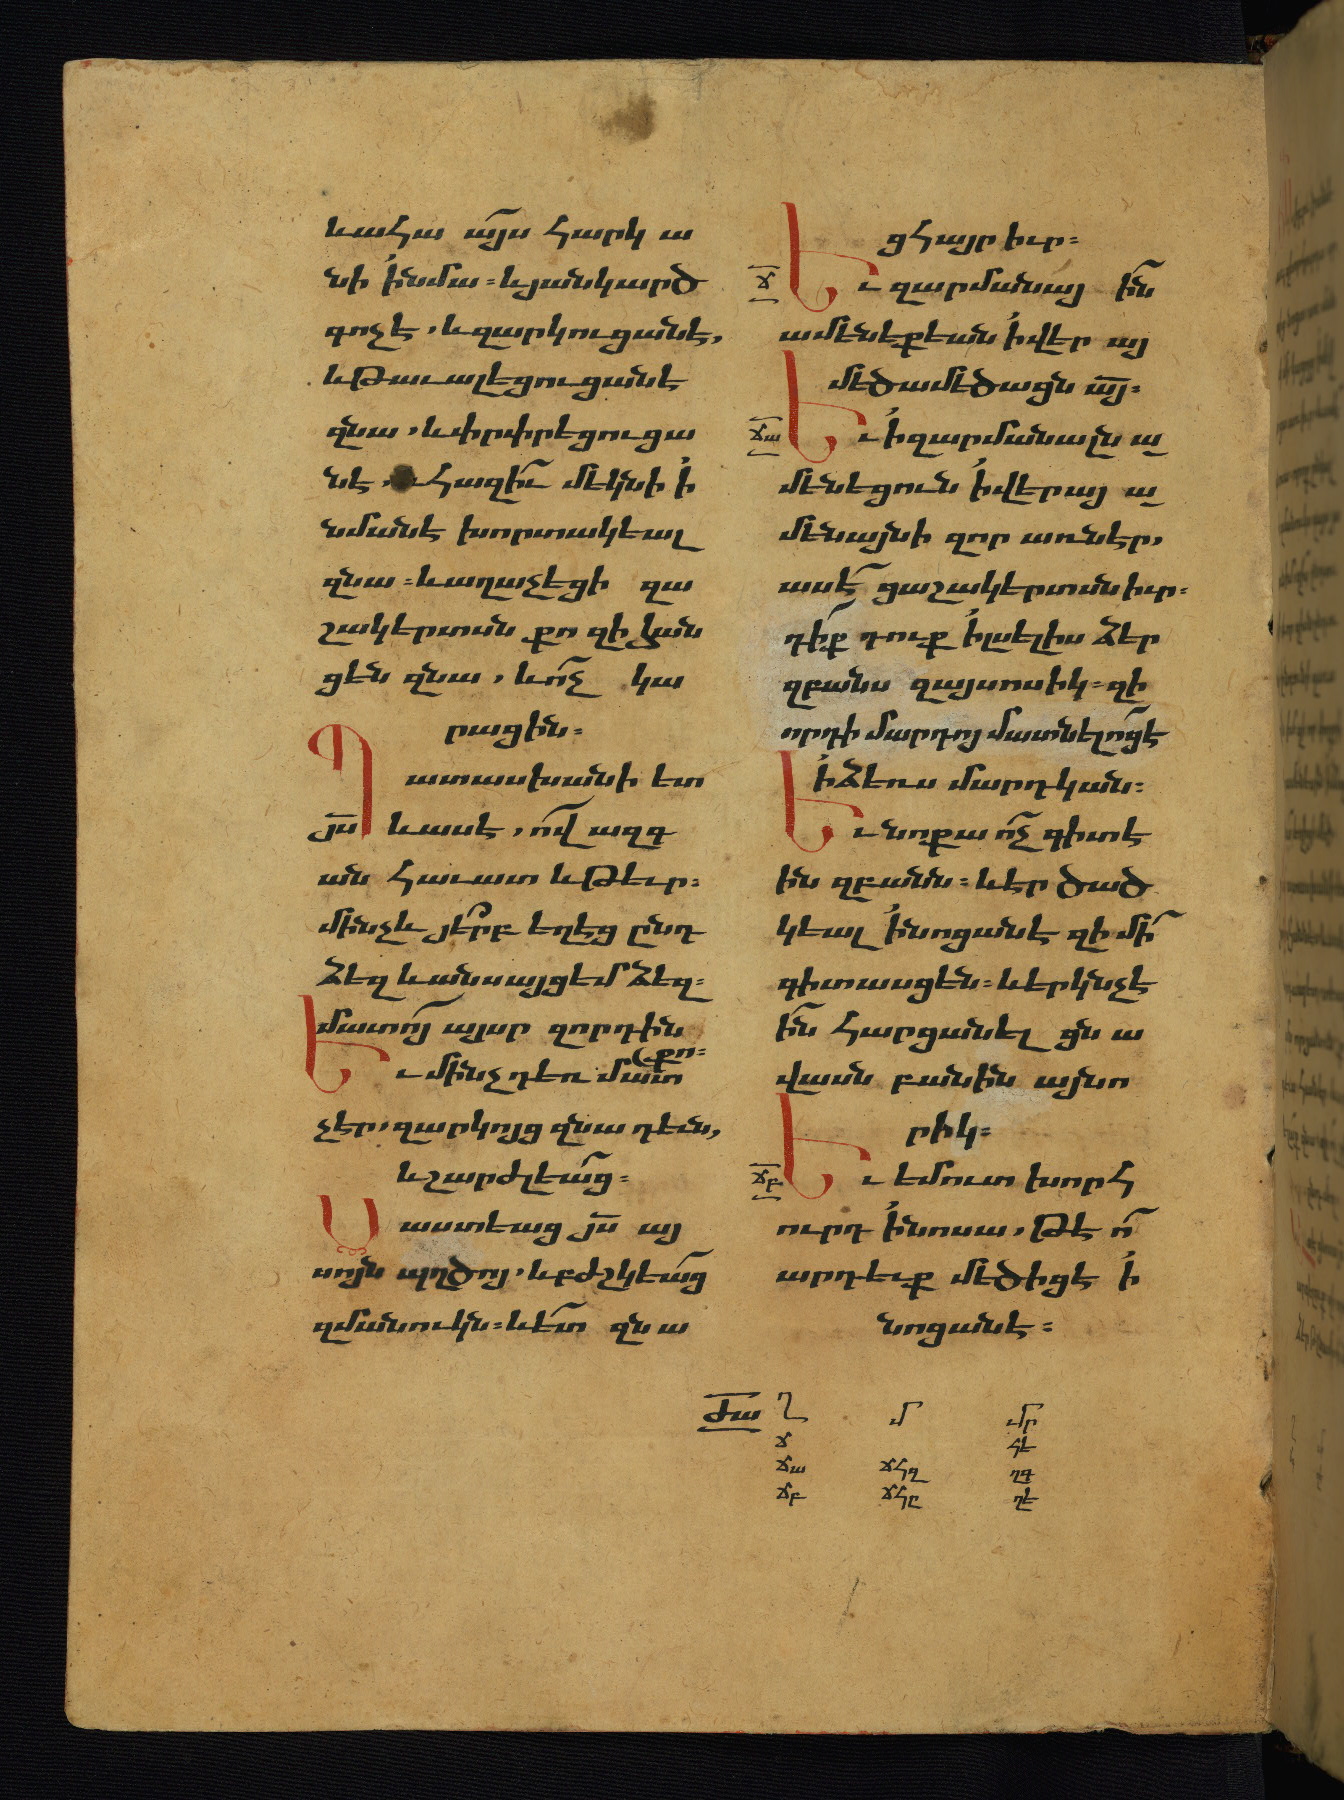 ևահա այս հարկ ա
նի ՛ինմա ։ ևյանկարծ
գոչէ , ևզարկուցանէ ,
ևթաւալեցուցանէ
զնա , ևփրփրեցուցա
նէ , և հազիւ մեկնի ՛ի
նմանէ խորտակեալ
զնա ։ ևաղաչեցի զա
շակերտսն քո զի հան
ցեն զնա , ևոչ կա
րացին ։
Պատասխանի ետ
յս ևասէ , ով ազգ
ան հաւատ ևթեւր ։
մինչև յերբ եղէց ընդ
ձեզ ևանսայցեմ ձեզ ։
մատո՛ այսր զորդին
քո ։
Եւ մինչդեռ մատո
չէր , զարկոյց զնա դեւն ,
ևշարժլեաց ։
Սաստեաց յս այ
սոյն պղծոյ , ևբժշկեաց
զմանուկն ։ ևետ զն ա
ցհայր իւր ։
ճ Եւ զարմանայ ին
ամենեքեան ՛իվեր այ
մեծամեծացն այ ։
ճա Եւ ՛իզարմանալն ա
մենեցուն ՛իվերայ ա
մենայնի զոր առնէր ,
ասէ ցաշակերտսն իւր ։
դիք դուք ՛իլսելիս ձեր
զբանս զայսոսիկ ։ զի
որդի մարդոյ մատնելոցէ
՛իձեռս մարդկան ։
Եւ նոքա ոչ գիտե
ին զբանն ։ ևէր ծած
կեալ ՛ինոցանէ զի մի
գիտասցեն ։ ևերկնչե
ին հարցանել ցն ա
վասն բանին այնո
րիկ ։
ճբ Եւ եմուտ խորհ
ուրդ ՛ինոսա , թէ ո
արդեւք մեծիցէ ՛ի
նոցանէ ։
ժա ղ մ մր
ճ հէ
ճա ճհզ ղգ
ճբ ճհը ղէ